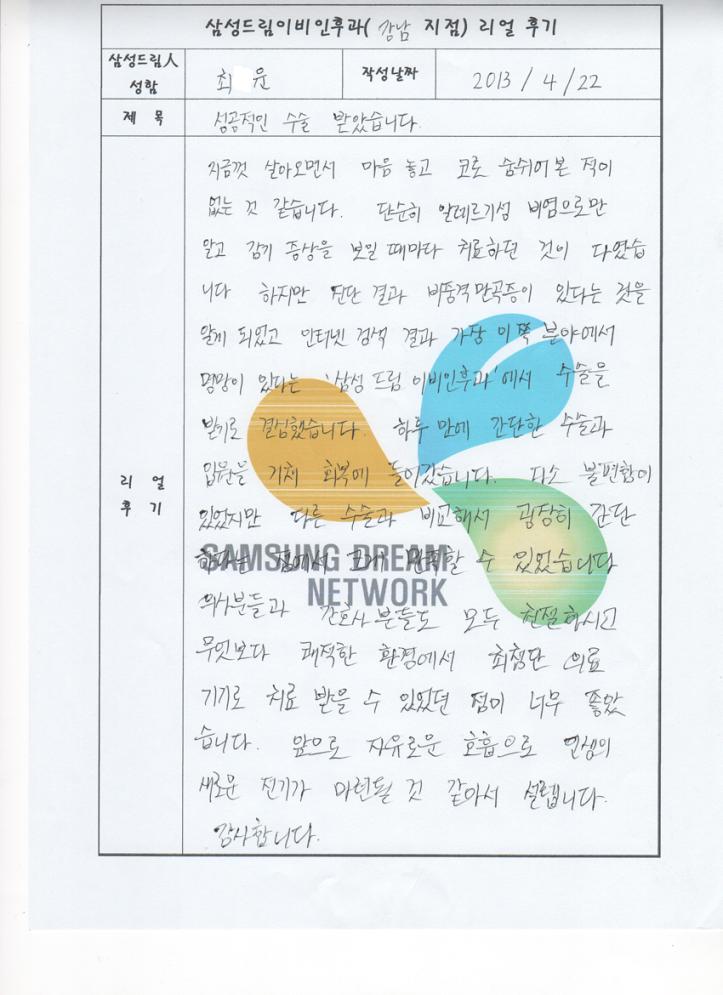 삼성드림이비인후과( 강남 지점) 리얼 후기
삼성드림人 성함
최 윤
작성날짜
2013 / 4 / 22
제 목
성공적인 수술 받았습니다.
리 얼 후 기
지금껏 살아오면서 마음 놓고 코로 숨쉬어 본 적이
없는 것 같습니다. 단순히 알레르기성 비염으로만
알고 감기 증상을 보일 때마다 치료하던 것이 다였습
니다 하지만 진단 결과 비중격만곡증이 있다는 것을
알게 되었고 인터넷 검색 결과 가장 이쪽 분야에서
명망이 있다는 '삼성 드림 이비인후과'에서 수술을
받기로 결심했습니다. 하루 만에 간단한 수술과
입원을 거쳐 회복에 들어갔습니다. 다소 불편함이
있었지만 다른 수술과 비교해서 굉장히 간단
하다는 점에서 크게 만족할 수 있었습니다
SAMSUNG DREAM
NETWORK
의사분들과 간호사 분들도 모두 친절하시고
무엇보다 쾌적한 환경에서 최첨단 의료
기기로 치료 받을 수 있었던 점이 너무 좋았
습니다. 앞으로 자유로운 호흡으로 인생의
새로운 전기가 마련될 것 같아서 설렙니다.
감사합니다.